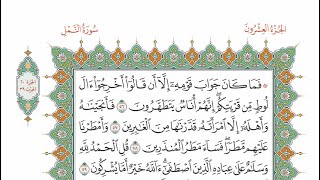 الجزء العشرون
سورة النمل
فَمَا كَانَ جَوَابَ قَوْمِهِ إِلَّا أَن قَالُوا أَخْرِجُوا ءَالَ
لُوطٍ مِّن قَرْيَتِكُمْ إِنَّهُمْ أُنَاسٌ يَتَطَهَّرُونَ ٥٦ فَأَنجَيْنَٰهُ
وَأَهْلَهُ إِلَّا امْرَأَتَهُ قَدَّرْنَٰهَا مِنَ الْغَٰبِرِينَ ٥٧ وَأَمْطَرْنَا
عَلَيْهِم مَّطَرًا فَسَاءَ مَطَرُ الْمُنذَرِينَ ٥٨ قُلِ الْحَمْدُ لِلَّهِ
وَسَلَٰمٌ عَلَىٰ عِبَادِهِ الَّذِينَ اصْطَفَىٰ ءَاللَّهُ خَيْرٌ أَمَّا يُشْرِكُونَ ٥٩